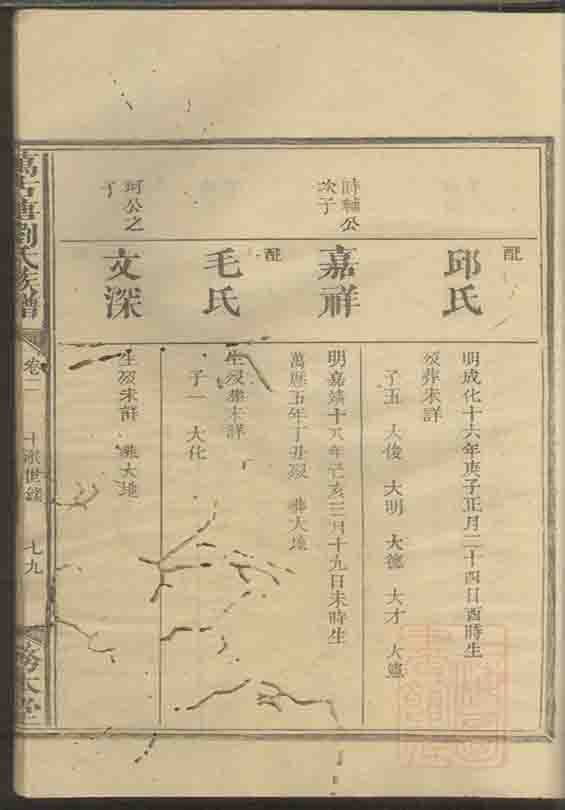 配
邱氏
明成化十六年庚子正月二十四日酉時生
歿葬未詳
子五 大俊 大明 大德 大才 大憲
時輔公
次子
嘉祥
明嘉靖十八年己亥三月十九日未時生
萬曆五年丁丑歿 葬大塊
配
毛氏
生歿葬未詳
子一 大化
珂公之
子
文深
生歿未詳 葬大塊
萬古塘劉氏族譜
卷二
七九
務本堂